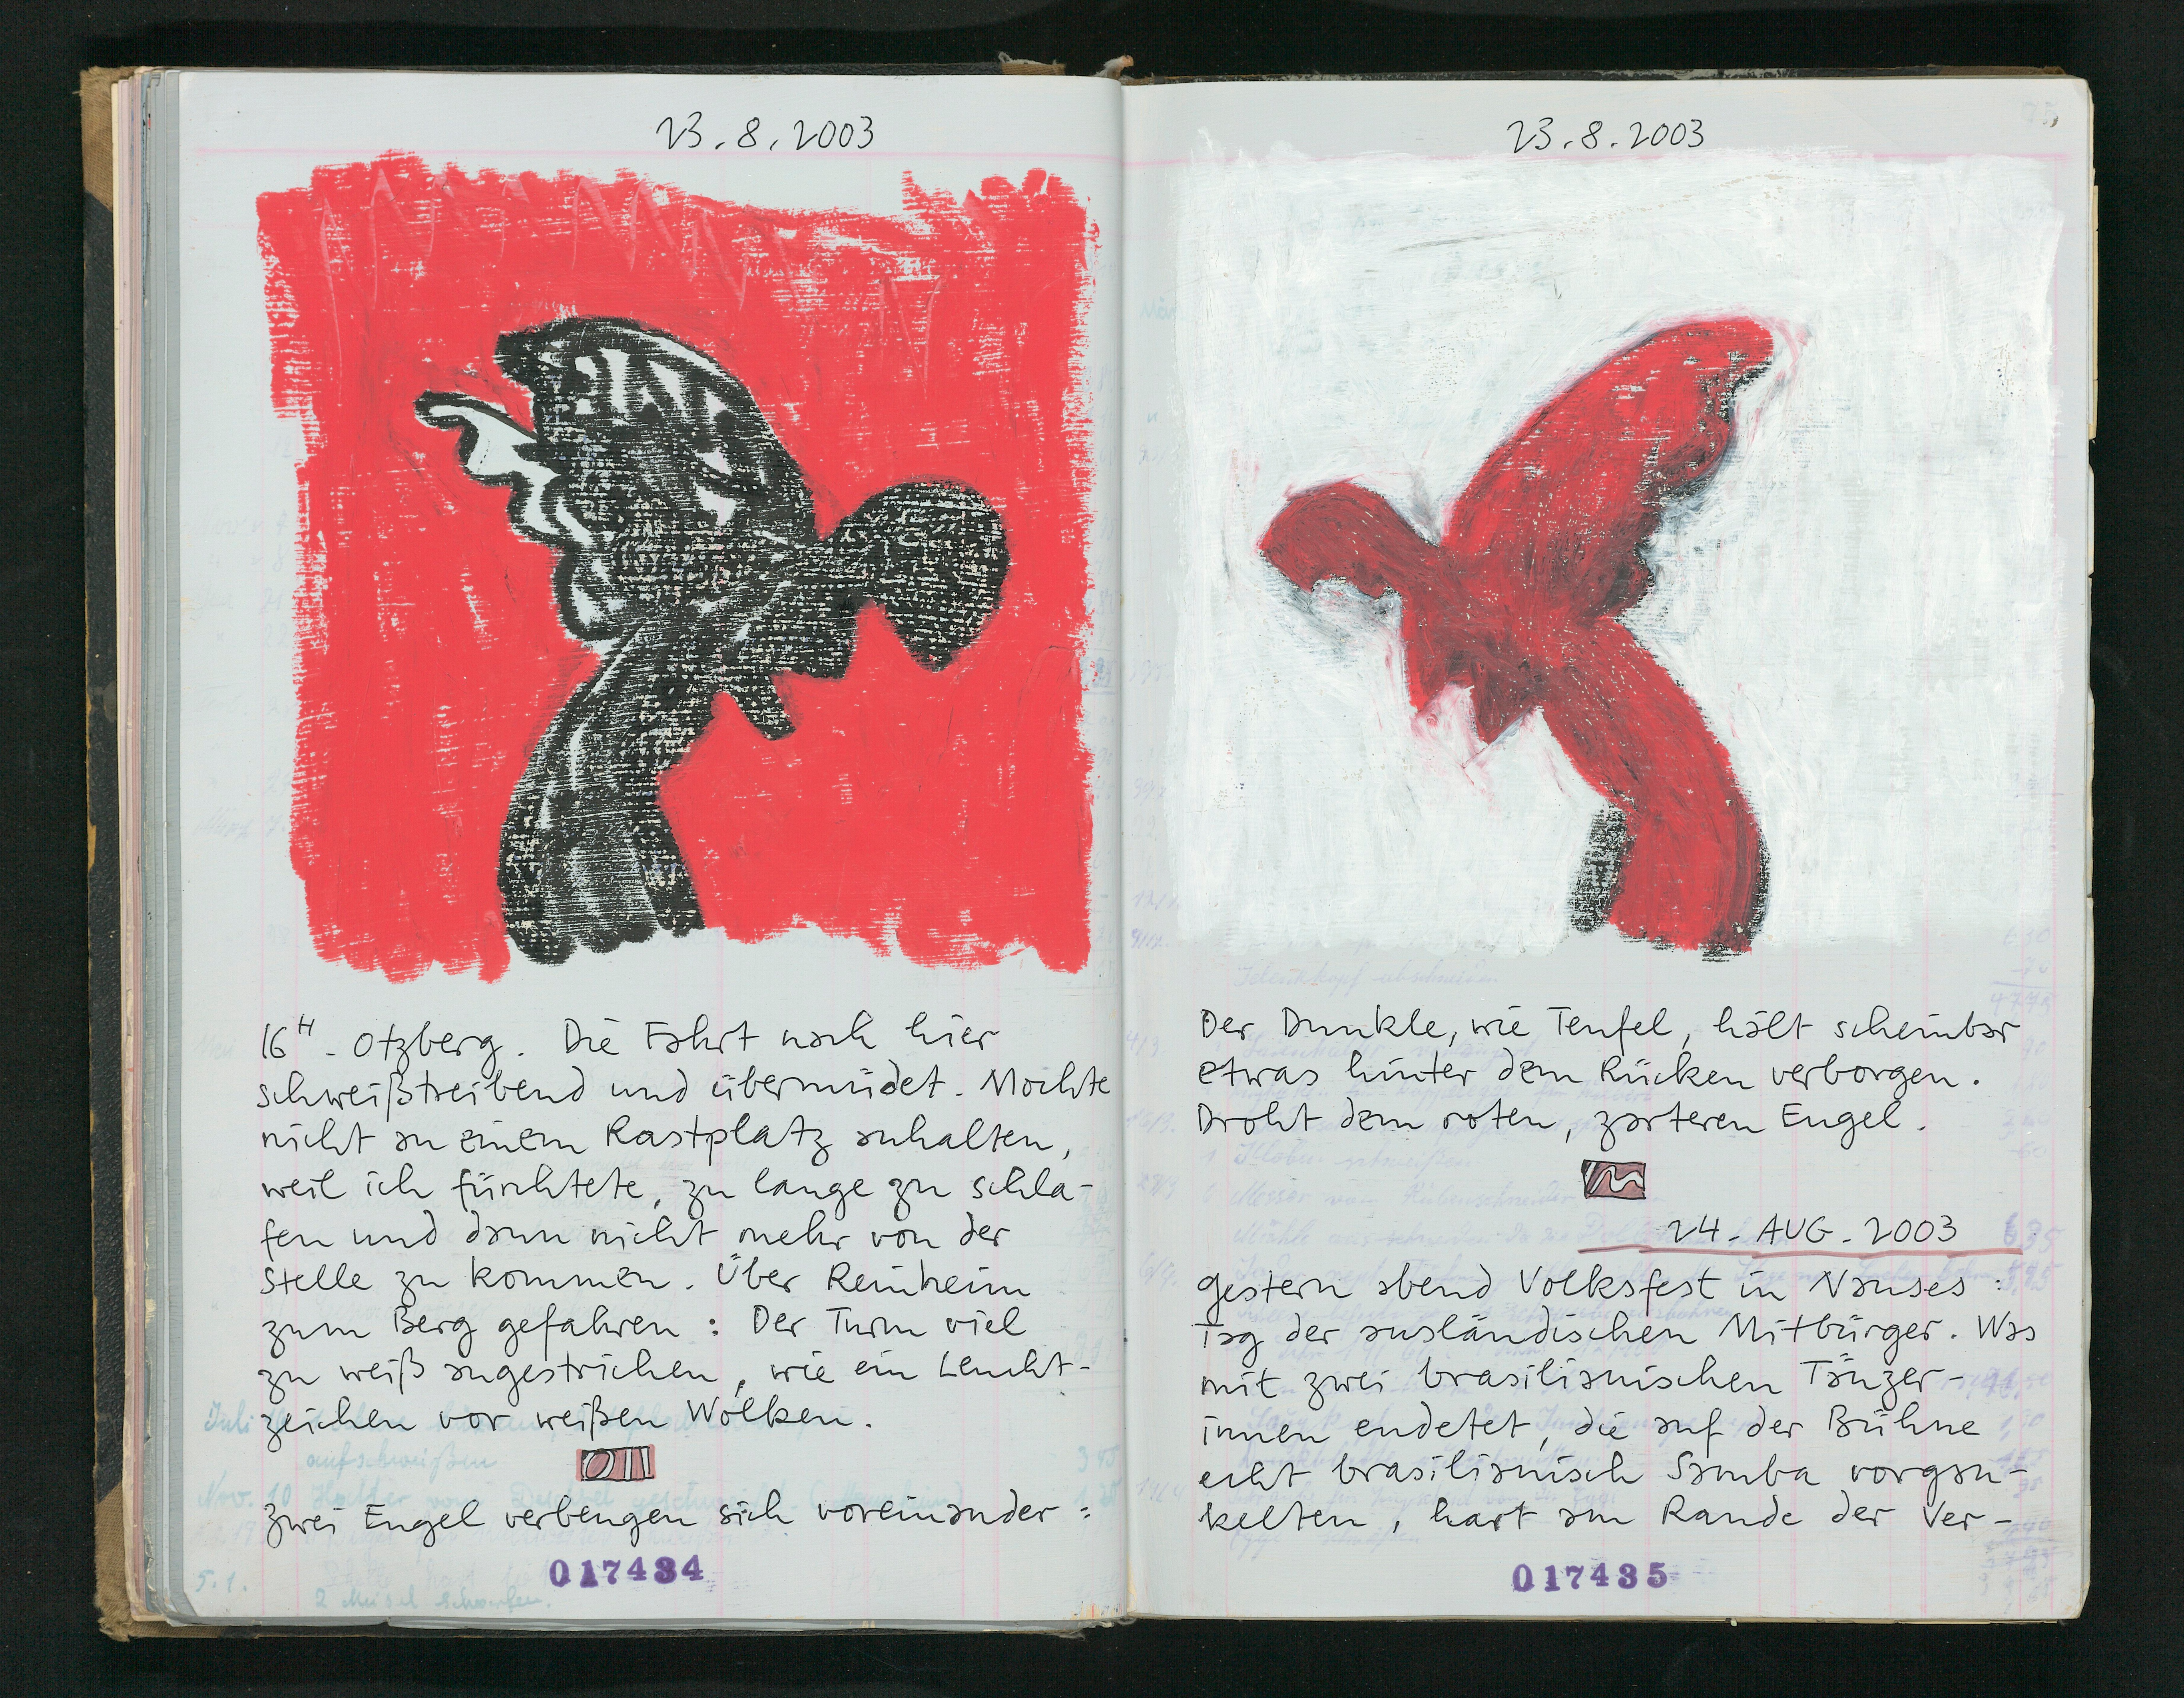 23.8.2003
16H - Otzberg. Die Fahrt nach hier
schweißtreibend und übermüdet. Mochte
nicht an einem Rastplatz anhalten,
weil ich fürchtete, zu lange zu schla-
fen und dann nicht mehr von der
Stelle zu kommen. Über Reinheim
zum Berg gefahren: Der Turm viel
zu weiß angestrichen, wie ein Leucht-
zeichen vor weißen Wolken.
Zwei Engel verbeugen sich voreinander:
017434
23.8.2003
Der Dunkle, wie Teufel, hält scheinbar
etwas hinter dem Rücken verborgen.
Droht dem roten, zarteren Engel.
24. AUG. 2003
gestern abend Volksfest in Nauses:
Tag der ausländischen Mitbürger. Was
mit zwei brasilianischen Tänzer-
innen endetet, die auf der Bühne
echt brasilianisch Samba vorgau-
kelten, hart am Rande der Ver-
017435